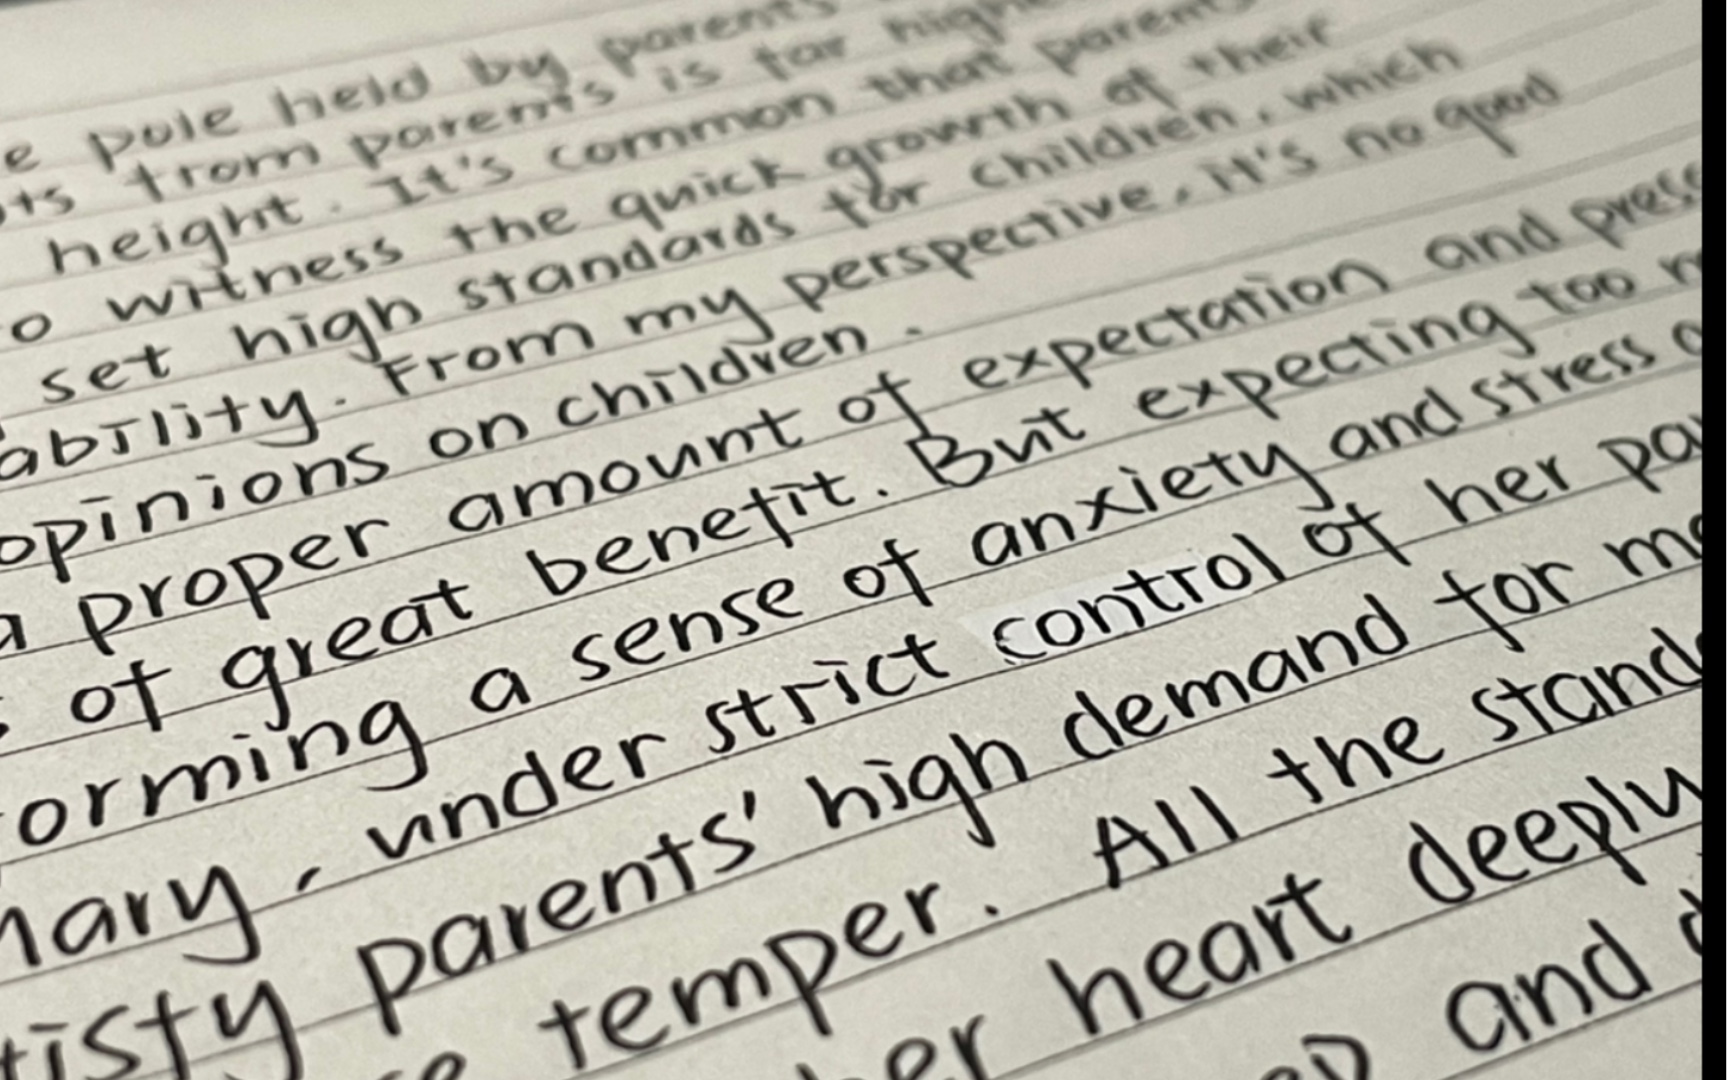 e pole held by parents
ts from parents is far high
height. It's common that parent
o witness the quick growth of their
set high standards for children, which
ability. From my perspective, it's no good
opinions on children.
a proper amount of expectation and press
s of great benefit. But expecting too m
orming a sense of anxiety and stress o
mary, under strict control of her pa
tisfy parents' high demand for mo
temper. All the stand
her heart deeply
and d